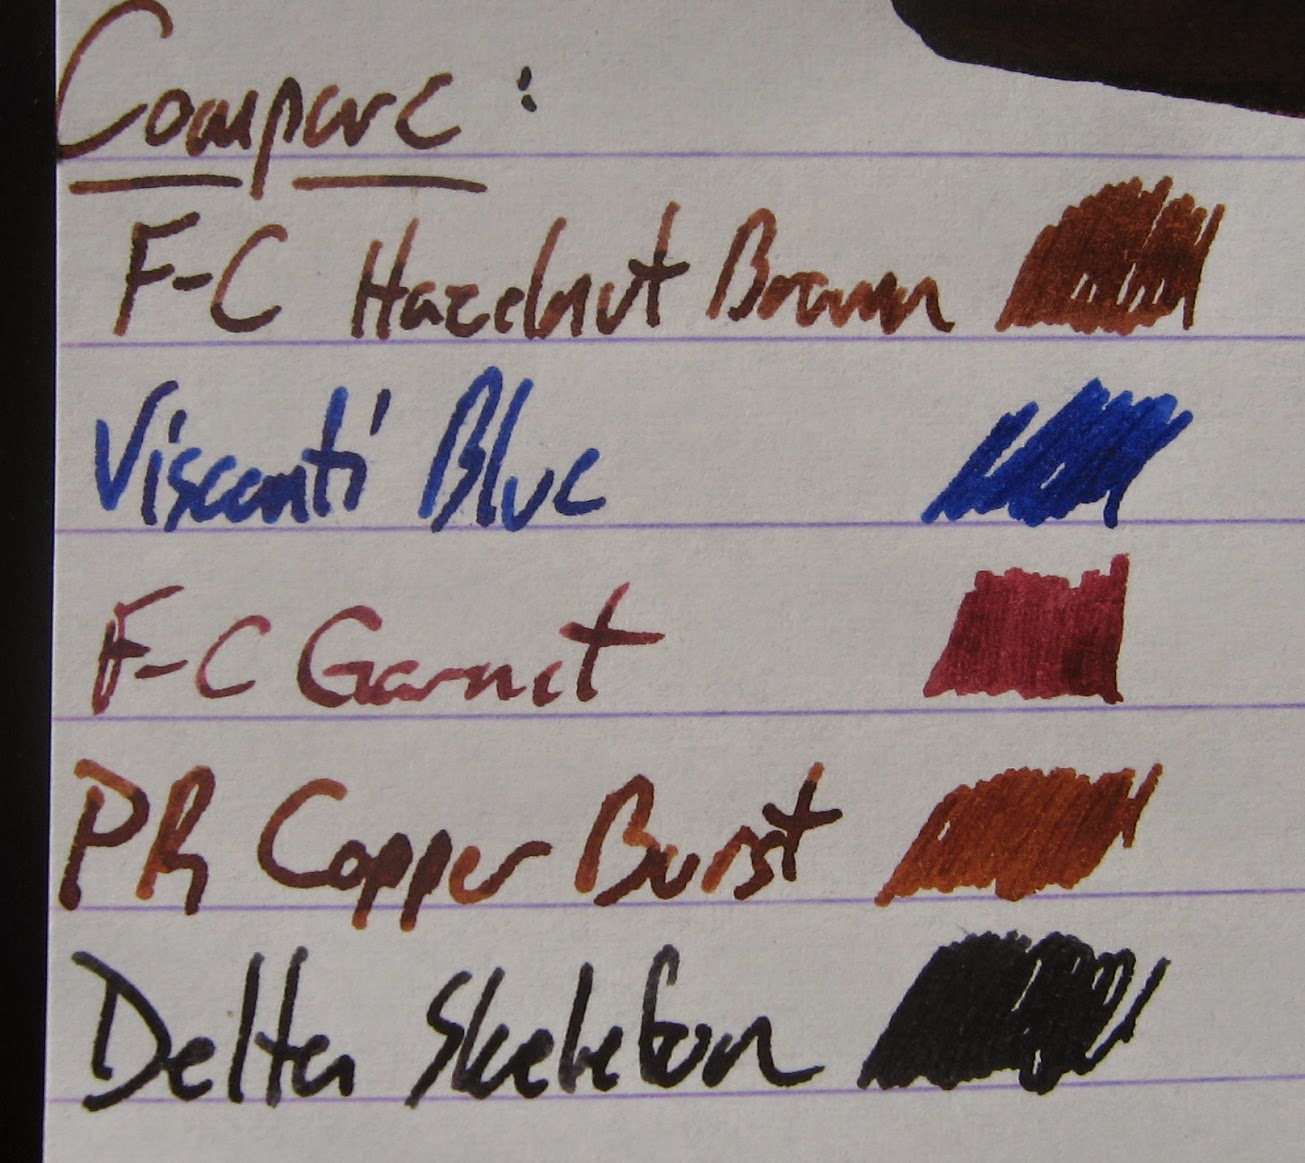 Compare :
F-C Hazelnut Brown
Visconti Blue
F-C Garnet
PR Copper Burst
Delta Skeleton